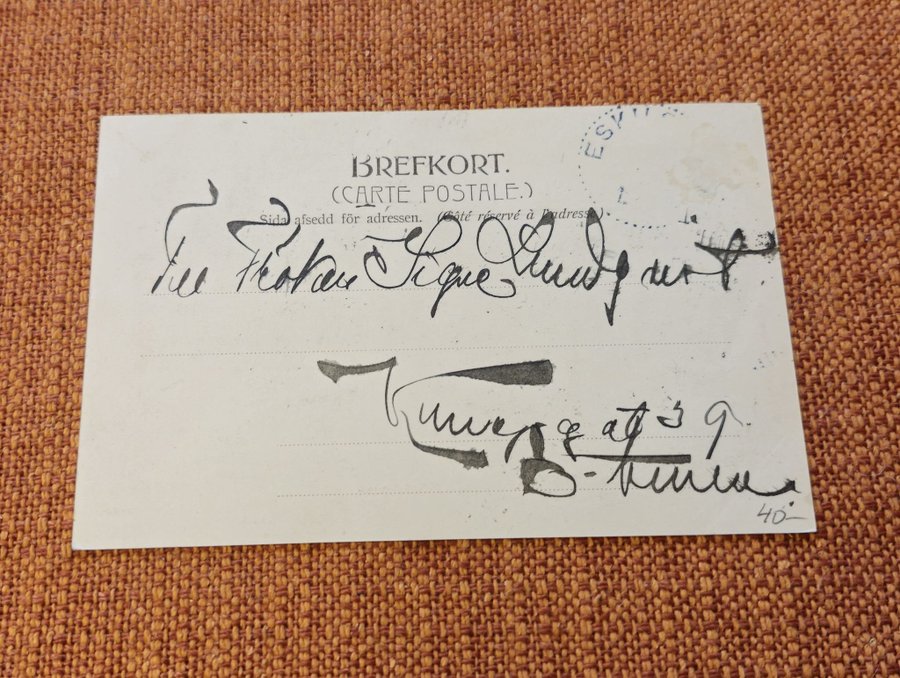 BREFKORT.
(CARTE POSTALE.)
Sida afsedd för adressen. (Côté réservé à l'adresse.)
ESKILS
Fröken Signe Lundqvist.
Kungsgat 39
40-